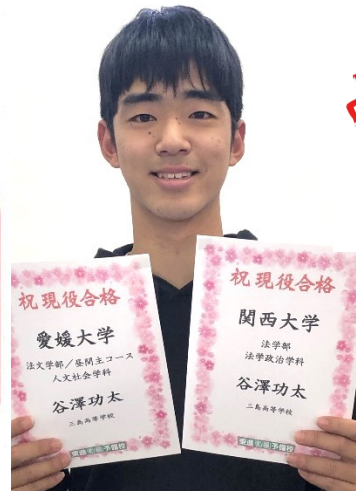 祝 現役合格
愛媛大学
法文学部/昼間主コース
人文社会学科
谷澤功太
三島高等学校
東進衛星予備校
祝 現役合格
関西大学
法学部
法学政治学科
谷澤功太
三島高等学校
東進衛星予備校